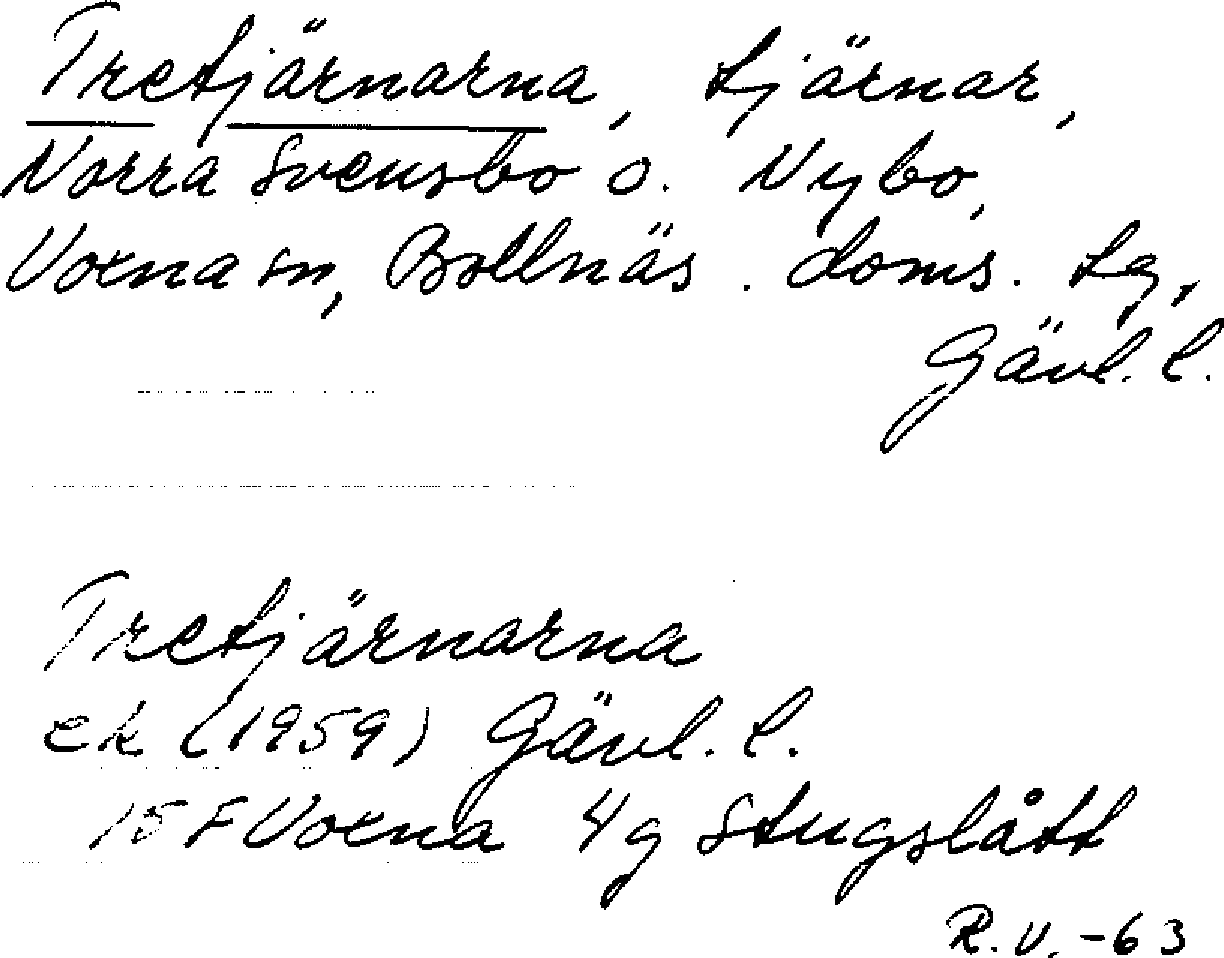 Tretjärnarna, tjärnar,
Norra Svensbo o. Nybo,
Voxna sn, Bollnäs. doms. tg,
Gävl. l.
Tretjärnarna
ek (1959) Gävl. l.
15 F Voxna 4g Stugslått
R.V. -63